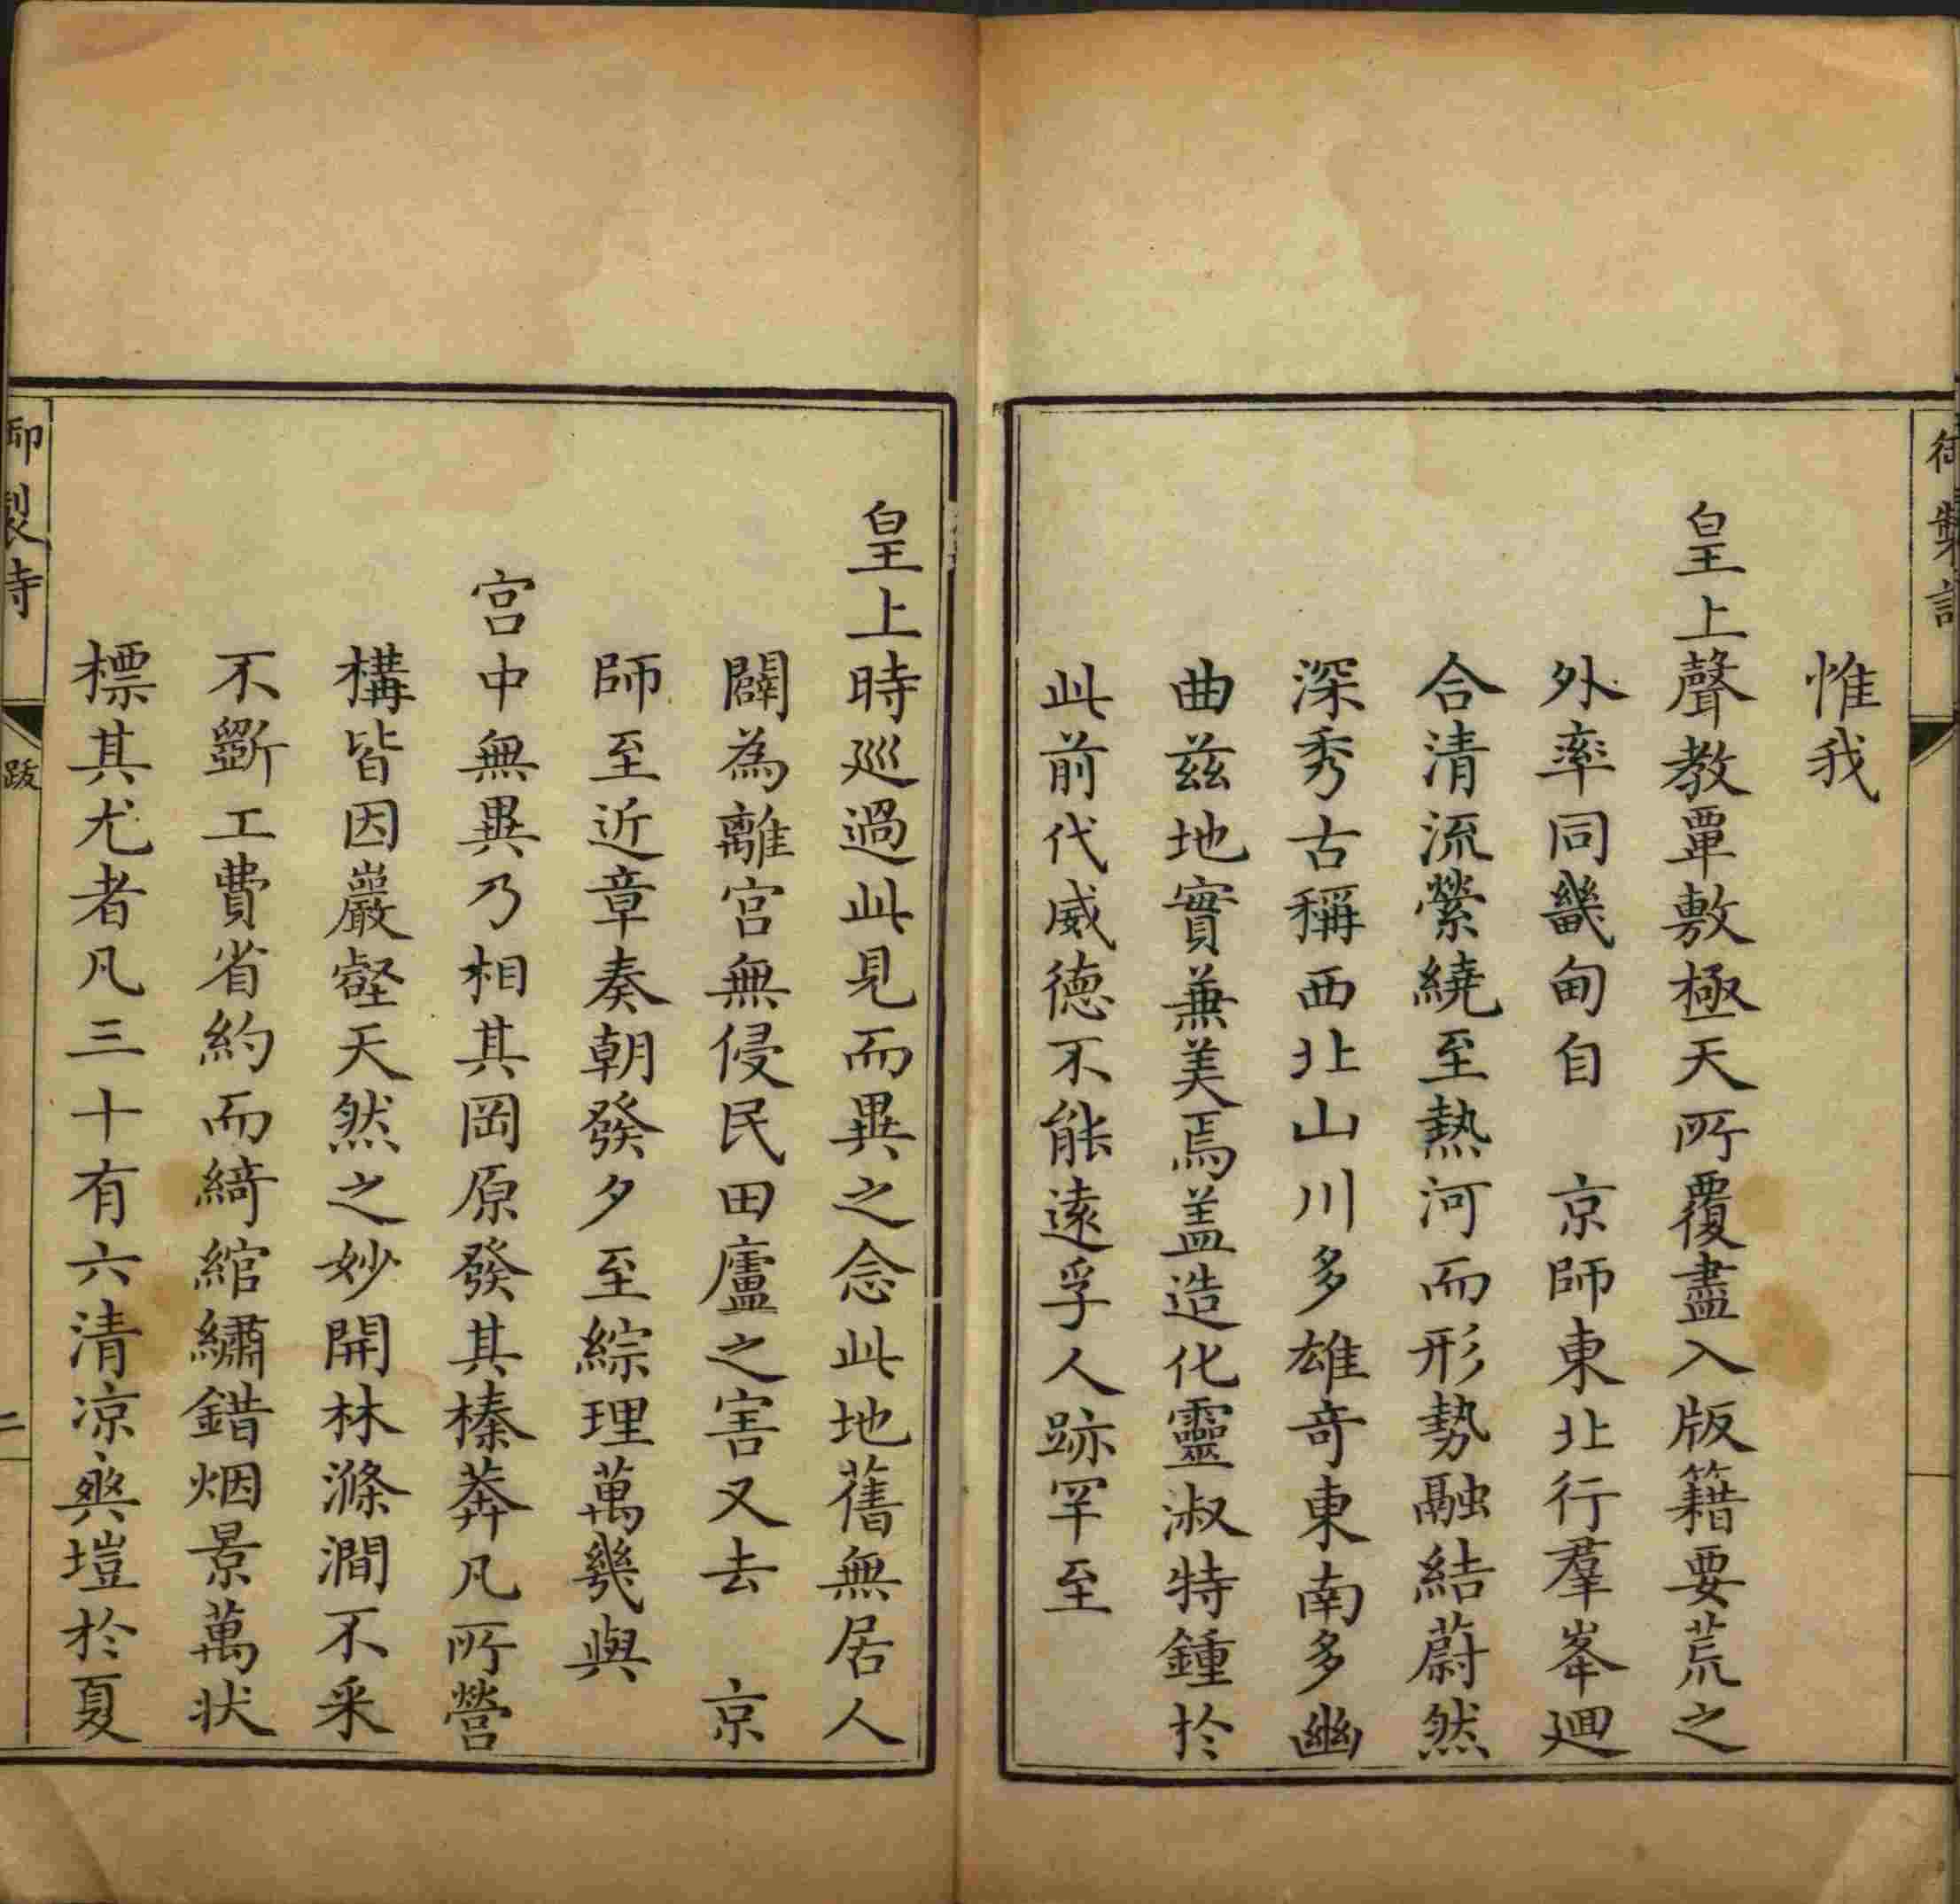 惟我
皇上聲教覃敷極天所覆盡入版籍要荒之
外率同畿甸自　京師東北行羣峯廻
合清流縈繞至熱河而形勢融結蔚然
深秀古稱西北山川多雄奇東南多幽
曲茲地實兼美焉蓋造化靈淑特鍾於
此前代威德不能遠孚人跡罕至
皇上時巡過此見而異之念此地舊無居人
闢為離宮無侵民田廬之害又去　京
師至近章奏朝發夕至綜理萬幾與
宮中無異乃相其岡原發其榛莽凡所營
構皆因巖壑天然之妙開林滌澗不采
不斲工費省約而綺綰繡錯烟景萬狀
標其尤者凡三十有六清涼爽塏於夏
御製詩
跋
二